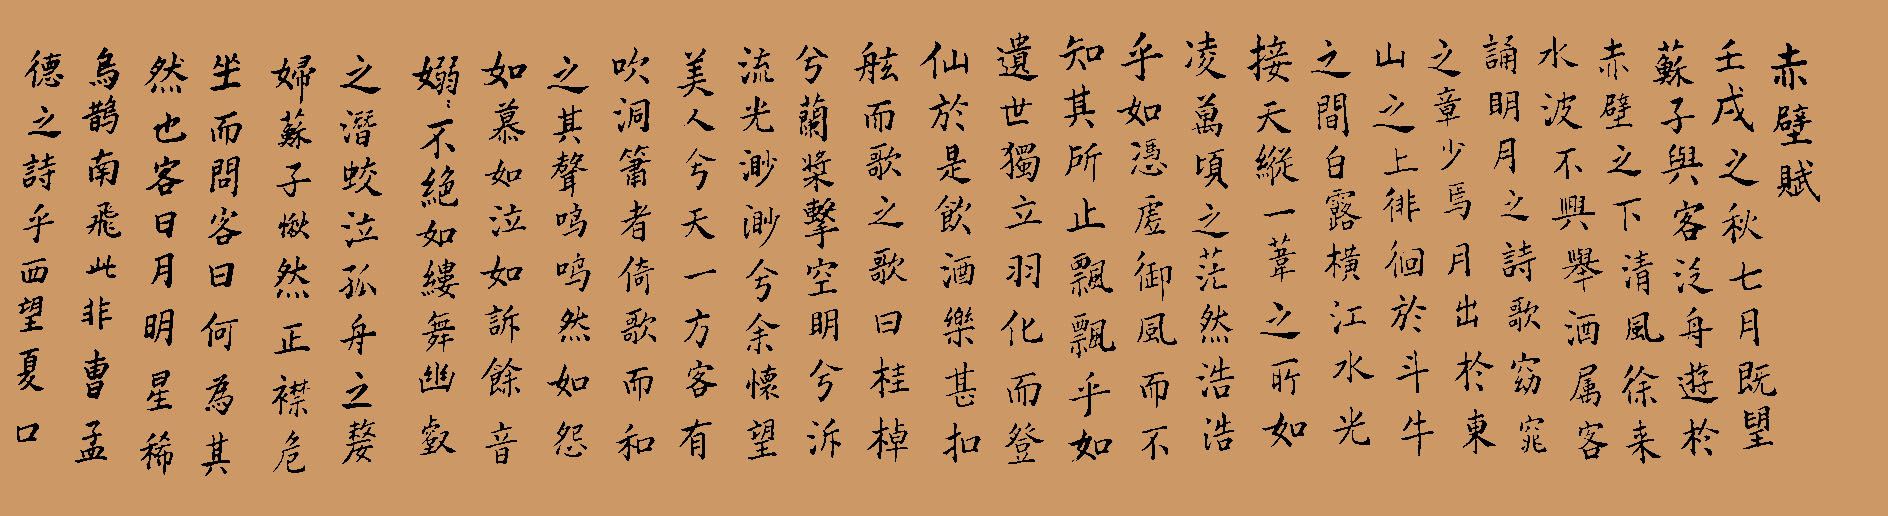 赤壁賦
壬戌之秋七月既望
蘇子與客泛舟遊於
赤壁之下清風徐来
水波不興舉酒属客
誦明月之詩歌窈窕
之章少焉月出於東
山之上徘徊於斗牛
之間白露橫江水光
接天縱一葦之所如
凌萬頃之茫然浩浩
乎如憑虛御風而不
知其所止飄飄乎如
遺世獨立羽化而登
仙於是飲酒樂甚扣
舷而歌之歌曰桂棹
兮蘭槳擊空明兮泝
流光渺渺兮余懷望
美人兮天一方客有
吹洞簫者倚歌而和
之其聲嗚嗚然如怨
如慕如泣如訴餘音
嫋〻不絕如縷舞幽壑
之潛蛟泣孤舟之嫠
婦蘇子愀然正襟危
坐而問客曰何為其
然也客曰月明星稀
烏鵲南飛此非曹孟
德之詩乎西望夏口